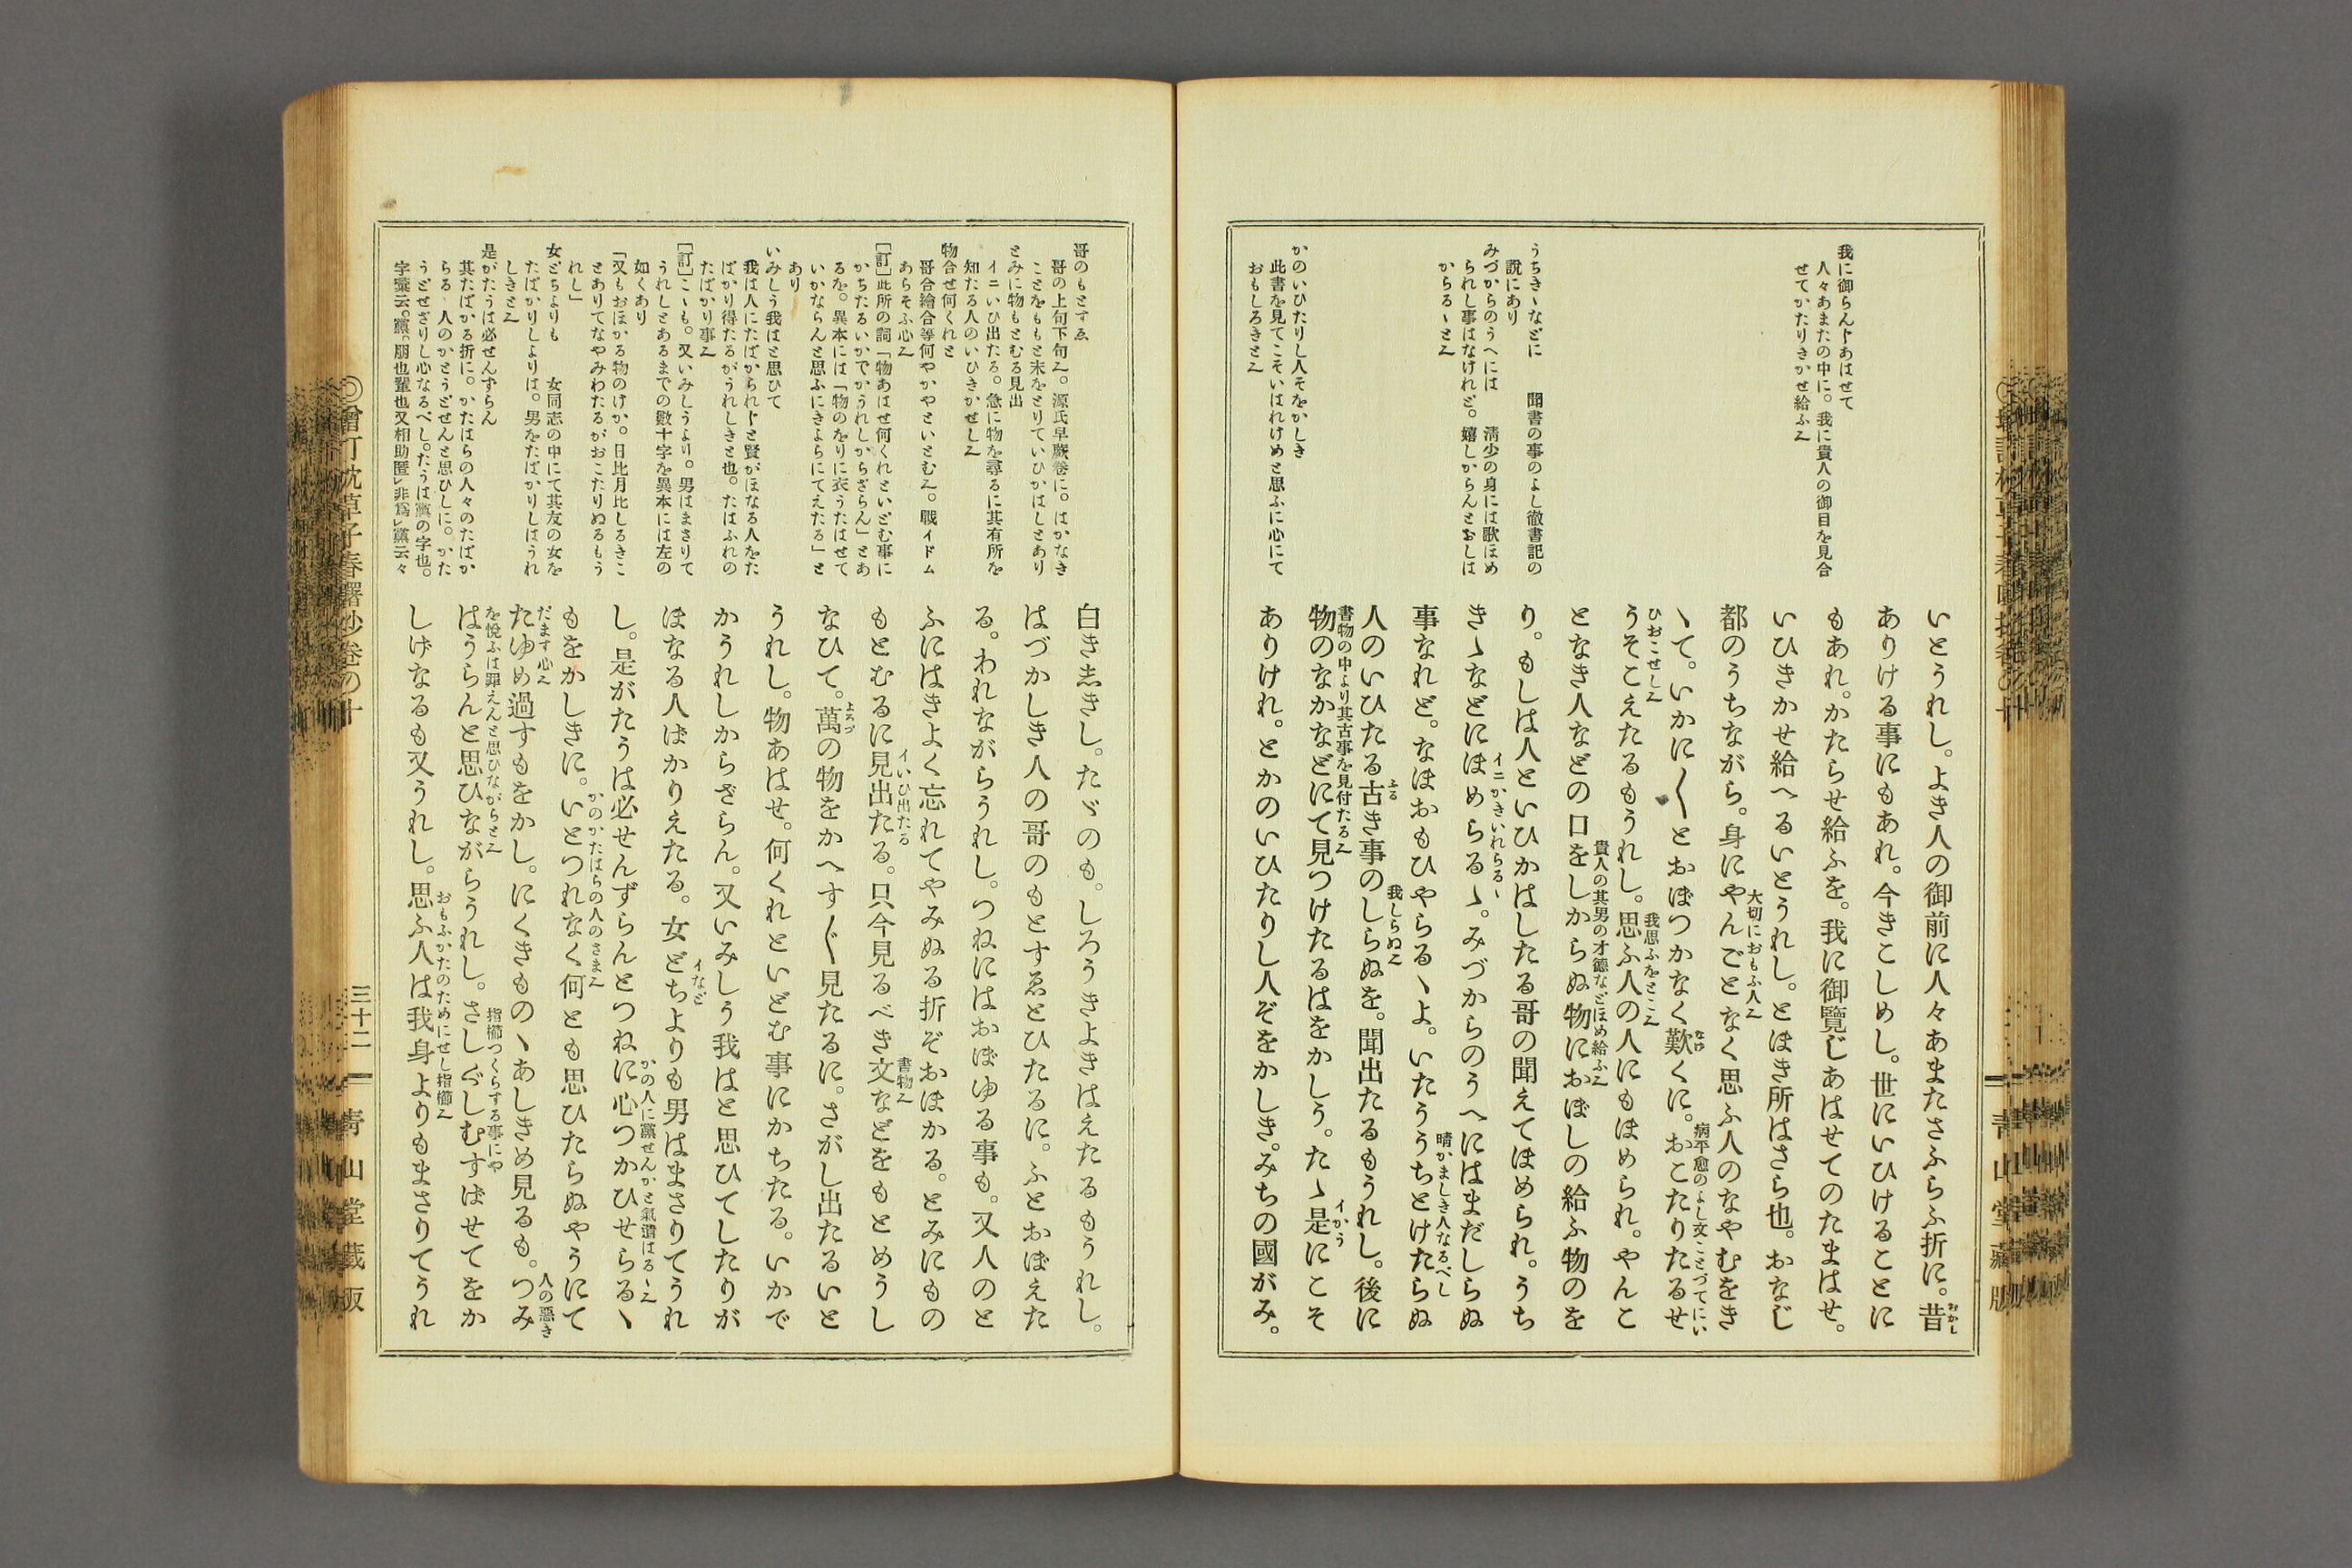 我に御らんじあはせて
人々あまたの中に。我に貴人の御目を見合
せてかたりきかせ給ふ也
うちきゝなどに　聞書の事のよし徹書記の
説にあり
みづからのうへには　清少の身には歌ほめ
られし事はなけれど。嬉しからんとおしは
からるゝと也
かのいひたりし人そをかしき
此書を見てこそいはれけめと思ふに心にて
おもしろきと也
いとうれし。よき人の御前に人々あまたさふらふ折に。昔
むかし
ありける事にもあれ。今きこしめし。世にいひけることに
もあれ。かたらせ給ふを。我に御覽じあはせてのたまはせ。
いひきかせ給へるいとうれし。とほき所はさら也。おなじ
都のうちながら。身にやんごとなく思ふ人のなやむをき
大切におもふ人也
ゝて。いかに〱とおぼつかなく歎くに。おこたりたるせ
なげ
病平愈のよし文ことづてにい
ひおこせし也
うそこえたるもうれし。思ふ人の人にもほめられ。やんこ
我思ふをとこ也
となき人などの口をしからぬ物におぼしの給ふ物のを
貴人の其男の才德などほめ給ふ也
り。もしは人といひかはしたる哥の聞えてほめられ。うち
きゝなどにほめらるゝ。みづからのうへにはまだしらぬ
イニかきいれらるゝ
事なれど。なほおもひやらるゝよ。いたううちとけたらぬ
晴かましき人なるべし
人のいひたる古き事のしらぬを。聞出たるもうれし。後に
ふる
我しらぬ也
物のなかなどにて見つけたるはをかしう。たゝ是にこそ
書物の中より其古事を見付たる也
イかう
ありけれ。とかのいひたりし人ぞをかしき。みちの國がみ。
靑山堂藏版
哥のもとすゑ
哥の上句下句也。源氏早蕨卷に。はかなき
ことをももと末をとりていひかはしとあり
とみに物もとむる見出
イニいひ出たる。急に物を尋るに其有所を
知たる人のいひきかせし也
物合せ何くれと
哥合繪合等何やかやといとむ也。戰イドム
あらそふ心也
［訂］此所の詞「物あはせ何くれといどむ事に
かちたるいかでかうれしからざらん」とあ
るを。異本には「物のをりに衣うたはせて
いかならんと思ふにきよらにてえたる」と
あり
いみしう我はと思ひて
我は人にたばかられじと賢がほなる人をた
ばかり得たるがうれしきと也。たはふれの
たばかり事也
［訂］こゝも。又いみしうより。男はまさりて
うれしとあるまでの數十字を異本には左の
如くあり
「又もおほかる物のけか。日比月比しるきこ
とありてなやみわたるがおこたりぬるもう
れし」
女どちよりも　女同志の中にて其友の女を
たばかりしよりは。男をたばかりしはうれ
しきと也
是がたうは必せんずらん
其たばかる折に。かたはらの人々のたばか
らるゝ人のかとうどせんと思ひしに。かた
うどせざりし心なるべし。たうは黨の字也。
字彙云。黨。朋也輩也又相助匿レ非爲レ黨云々
白き㐂きし。たゞのも。しろうきよきはえたるもうれし。
はづかしき人の哥のもとすゑとひたるに。ふとおぼえた
る。われながらうれし。つねにはおぼゆる事も。又人のと
ふにはきよく忘れてやみぬる折ぞおほかる。とみにもの
もとむるに見出たる。只今見るべき文などをもとめうし
イいひ出たる
書物也
なひて。萬の物をかへす〲見たるに。さがし出たるいと
よろづ
うれし。物あはせ。何くれといどむ事にかちたる。いかで
かうれしからざらん。又いみしう我はと思ひてしたりが
ほなる人はかりえたる。女どちよりも男はまさりてうれ
イなど
し。是がたうは必せんずらんとつねに心つかひせらるゝ
かの人に黨せんかと氣遣はるゝ也
もをかしきに。いとつれなく何とも思ひたらぬやうにて
かのかたはらの人のさま也
たゆめ過すもをかし。にくきものゝあしきめ見るも。つみ
だます心也
人の惡き
を悅ふは罪えんと思ひながらと也
はうらんと思ひながらうれし。さしぐしむすばせてをか
指櫛つくらする事にや
しげなるも又うれし。思ふ人は我身よりもまさりてうれ
おもふかたのためにせし指櫛也
◎增訂枕草子春曙抄卷の十
三十二
靑山堂藏版